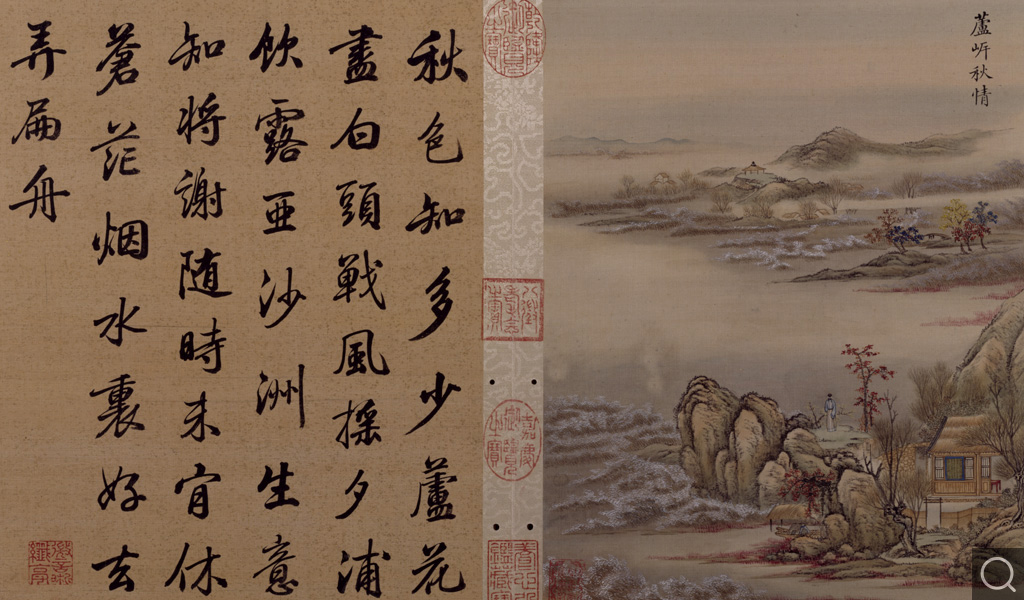 蘆岸秋情
秋色知多少蘆花
盡白頭戰風搖夕浦
飲露亞沙洲生意
知將謝随時未肯休
蒼茫烟水裏好去
弄扁舟